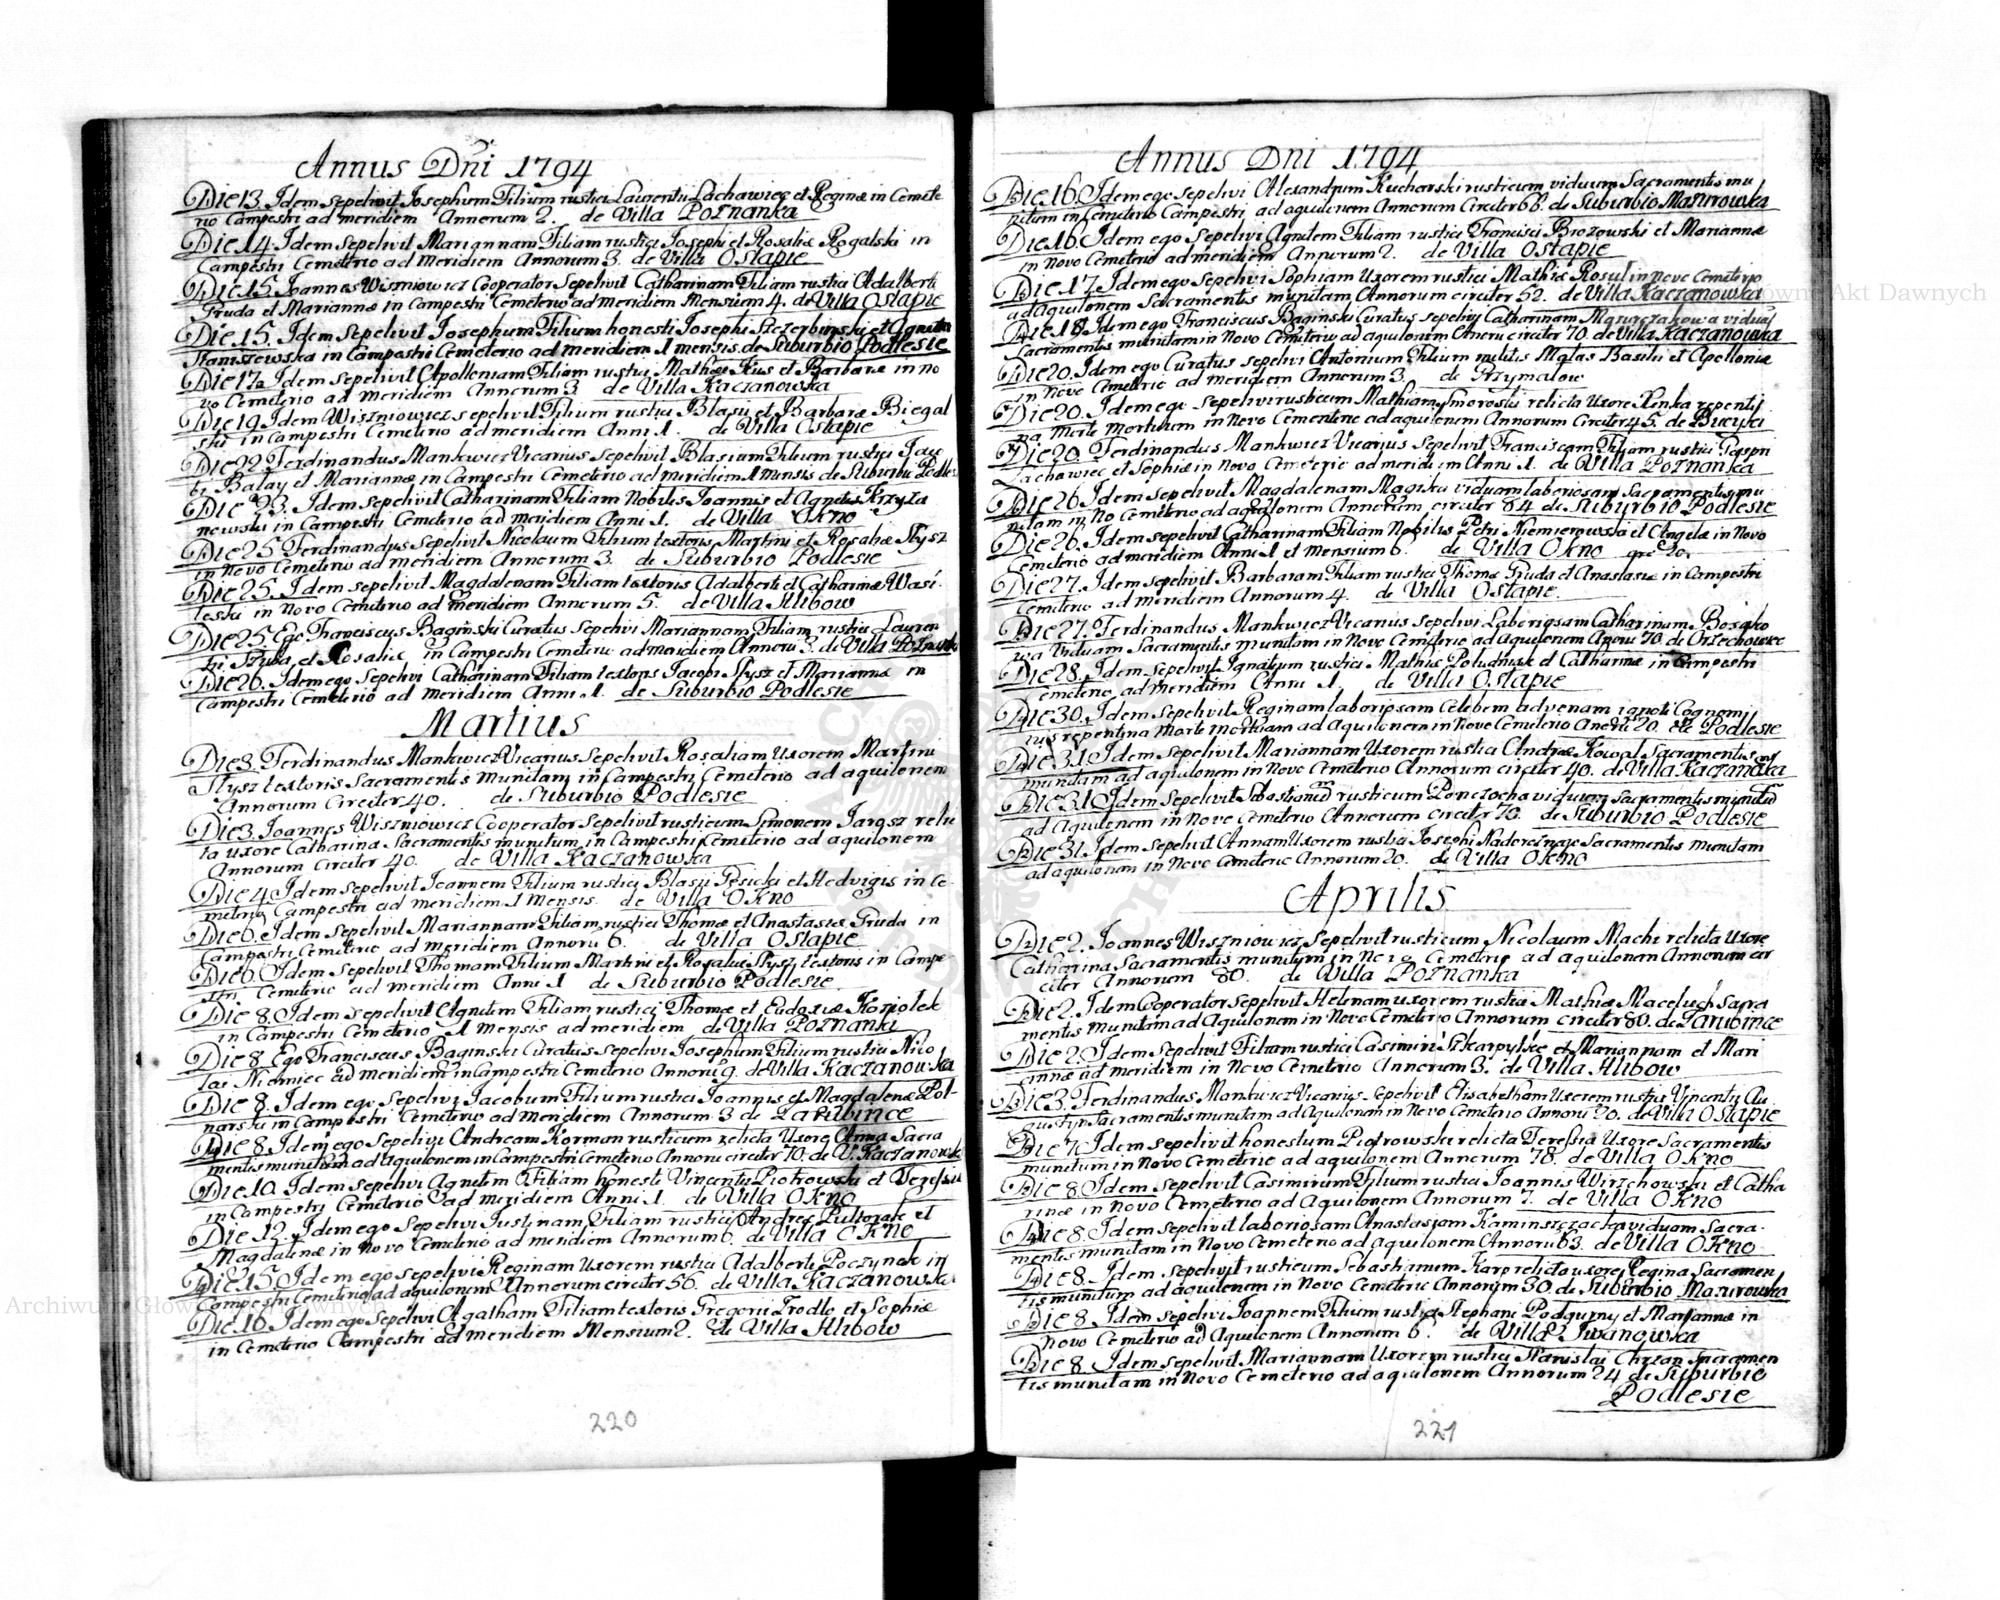 Annus Dni 1794
Die 13. Idem sepelivit Josephum Filium rustici Laurentii Lachawiec et Reginæ in Cemete
rio Campestri ad meridiem Annorum 2. de Villa Poznanka
Die 14. Idem sepelivit Mariannam Filiam rustici Josephi et Rosaliæ Rogalski in
Campestri Cemeterio ad Meridiem Annorum 3. de Villa Ostapie
Die 15. Joannes Wiszniowicz Cooperator Sepelivit Catharinam Filiam rustici Adalberti
Gruda et Mariannæ in Campestri Cemeterio ad meridiem Mensium 4. de Villa Ostapie
Die 15. Idem Sepelivit Josephum Filium honesti Josephi Szczerbinski et Agnetis
Staniszewska in Campestri Cemeterio ad meridiem 1 mensis. de Suburbio Podlesie
Die 17. Idem Sepelivit Apolloniam Filiam rustici Mathiæ Kus et Barbaræ in no
vo Cemeterio ad meridiem Annorum 3 de Villa Kaczanowka
Die 19. Idem Wiszniowicz sepelivit Filium rustici Blasii et Barbaræ Biegal
ski in Campestri Cemeterio ad meridiem Anni 1. de Villa Ostapie
Die 22. Ferdinandus Mankwicz Vicarius Sepelivit Blasium Filium rustici Jaco
bi Balay et Mariannæ in Campestri Cemeterio ad meridiem 1 mensis de Suburbio Podle
Die 23. Idem sepelivit Catharinam Filiam Nobilis Joannis et Agnetis Krzyza
nowski in Campestri Cemeterio ad meridiem Anni 1. de Villa Okno
Die 25 Ferdinandus Sepelivit Nicolaum Filium textoris Martini et Rosaliæ Slysz
in Novo Cemeterio ad meridiem Annorum 3. de Suburbio Podlesie
Die 25. Idem sepelivit Magdalenam Filiam textoris Adalberti et Catharinæ Wasi
leski in Novo Cemeterio ad meridiem Annorum 5. de Villa Hlibow
Die 25 Ego Franciscus Baginski Curatus Sepelivi Mariannam Filiam rustici Lauren
tii et Rosaliæ in Campestri Cemeterio ad meridiem Annoru 3. de Villa Poznanka
Die 26. Idem ego Sepelivi Catharinam Filiam textoris Jacobi Slysz et Mariannæ in
Campestri Cemeterio ad meridiem Anni 1. de Suburbio Podlesie
Martius
Die 3. Ferdinandus Mankwicz Vicarius Sepelivit Rosaliam Uxorem Martini
Slysz textoris Sacramentis Munitam in Campestri Cemeterio ad aquilonem
Annorum Circiter 40. de Suburbio Podlesie
Die 3. Joannes Wiszniowicz Cooperator Sepelivit rusticum Simonem Jarosz relic
ta uxore Catharina Sacramentis munitum in Campestri Cemeterio ad aquilonem
Annorum Circiter 40. de Villa Kaczanowka
Die 4. Idem sepelivit Joannem Filium rustici Blasii Psicki et Hedvigis in Ce
meterio Campestri ad meridiem 1 Mensis. de Villa Okno
Die 6. Idem Sepelivit Mariannam Filiam rustici Thomæ et Anastasiæ Gruda in
Campestri Cemeterio ad meridiem Annoru 6. de Villa Ostapie
Die 6. Idem Sepelivit Thomam Filium Martini et Rosaliæ Slysz textoris in Campe
stri Cemeterio ad meridiem Anni 1 de Suburbio Podlesie
Die 8. Idem sepelivit Agnetem Filiam rustici Thomæ et Eudoxiæ Koziolek
in Campestri Cemeterio 1 Mensis ad meridiem de Villa Poznanka
Die 8. Ego Franciscus Baginski Curatus sepelivi Josephum Filium rustici Nico
lai Niemiec ad meridiem in Campestri Cemeterio Annoru 9. de Villa Kaczanowka
Die 8. Idem ego Sepelivi Jacobum Filium rustici Joannis et Magdalenæ Pol
narski in Campestri Cemeterio ad meridiem Annorum 3 de Zarubince
Die 8. Idem ego Sepelivi Andream Korman rusticum relicta Uxore Anna Sacra
mentis munitum ad aquilonem in Campestri Cemeterio Annoru circiter 70. de V. Kaczanowka
Die 10. Idem sepelivi Agnetem Filiam honesti Vincentii Piotrowski et Teressiæ
in Campestri Cemeterio ad meridiem Anni 1. de Villa Okno
Die 12. Idem ego Sepelivi Justinam Filiam rustici Andreæ Pultorak et
Magdalenæ in Novo Cemeterio ad meridiem Annorum 6. de Villa Okno
Die 15. Idem ego sepelivi Reginam Uxorem rustici Adalberti Poczynok in
Campestri Cemeterio ad aquilonem Annorum circiter 56. de Villa Kaczanowka
Die 16. Idem ego Sepelivi Agatham Filiam textoris Gregorii Trodlo et Sophiæ
in Cemeterio Campestri ad meridiem Mensium 2. de Villa Hlibow
220
Annus Dni 1794
Die 16. Idem ego Sepelivi Alexandrum Kucharski rusticum viduum Sacramentis mu
nitum in Cemeterio Campestri ad aquilonem Annorum Circiter 68. de Suburbio Mazurowka
Die 16. Idem ego Sepelivi Agnetem Filiam rustici Francisci Brozowski et Mariannæ
in Novo Cemeterio ad meridiem Annorum 2. de Villa Ostapie
Die 17. Idem ego Sepelivi Sophiam Uxorem rustici Mathiæ Rosul in novo Cemeterio
ad aquilonem Sacramentis munitam Annorum circiter 52. de Villa Kaczanowka
Die 18. Idem ego Franciscus Baginski Curatus sepelivi Catharinam Mazurczakowa viduā
Sacramentis munitam in Novo Cemeterio ad aquilonem Annoru circiter 70. de Villa Kaczanowka
Die 20. Idem ego Curatus sepelivi Antonium Filium militis Malas Basilii et Apolloniæ
in Novo Cemeterio ad meridiem Annorum 3. de Grzymalow
Die 20. Idem ego Sepelivi rusticum Mathiam Smoroski relicta Uxore Xenka repenti
na Morte Mortuum in Novo Cemeterio ad aquilonem Annorum Circiter 45. de Bucyki
Die 20. Ferdinandus Mankwicz Vicarius Sepelivit Franciscam Filiam rustici Gaspri
Lachawiec et Sophiæ in Novo Cemeterio ad meridiem Anni 1. de Villa Poznanka
Die 26. Idem sepelivit Magdalenam Magiska viduam laboriosam Sacramentis mu
nitam in No Cemeterio ad aquilonem Annorum circiter 84 de Suburbio Podlesie
Die 26. Idem sepelivit Catharinam Filiam Nobilis Petri Niemierowski et Angelæ in Novo
Cemeterio ad meridiem Anni 1 et Mensium 6. de Villa Okno
Die 27. Idem sepelivit Barbaram Filiam rustici Thomæ Gruda et Anastasiæ in Campestri
Cemeterio ad meridiem Annorum 4. de Villa Ostapie.
Die 27. Ferdinandus Mankwicz Vicarius Sepelivi Laboriosam Catharinam Bosako
wa Viduam Sacramentis munitam in Novo Cemeterio ad Aquilonem Annoru 70. de Orzechowiec
Die 28. Idem Sepelivit Ignatium rustici Mathiæ Poludniak et Catharinæ in Campestri
Cemeterio ad meridiem Anni 1. de Villa Ostapie
Die 30. Idem Sepelivit Reginam laboriosam Celebem advenam ignoti Cognomi
nis repentina Morte Mortuam ad Aquilonem in Novo Cemeterio Annoru 20. de Podlesie
Die 31. Idem Sepelivit Mariannam Uxorem rustici Andreæ Kowal Sacramentis
munitam ad aquilonem in Novo Cemeterio Annorum circiter 40. de Villa Kaczanowka
Die 31. Idem Sepelivit Sebastianū rusticum Ponczocha viduum Sacramentis munitū
ad Aquilonem in Novo Cemeterio Annorum circiter 70. de Suburbio Podlesie
Die 31. Idem Sepelivit Annam Uxorem rustici Josephi Nadoreznae Sacramentis munitam
ad aquilonem in Novo Cemeterio Annorum 20. de Villa Okno
Aprilis
Die 2. Joannes Wiszniowicz Sepelivit rusticum Nicolaum Machi relicta Uxore
Catharina Sacramentis munitum in Novo Cemeterio ad aquilonem Annorum cir
citer Annorum 80. de Villa Poznanka
Die 2. Idem Cooperator Sepelivit Helenam uxorem rustici Mathiæ Maceluch Sacra
mentis munitam ad Aquilonem in Novo Cemeterio Annorum circiter 80. de Zarubince
Die 2. Idem Sepelivit Filiam rustici Casimiri Szkarpytko et Mariannam et Mari
annæ ad meridiem in Novo Cemeterio Annorum 3. de Villa Hlibow
Die 3. Ferdinandus Mankwicz Vicarius Sepelivit Elisabetham Uxorem rustici Vincentii Au
gustyn Sacramentis munitam ad Aquilonem in Novo Cemeterio Annoru 20. de Villa Ostapie
Die 7. Idem sepelivit honestum Piotrowski relicta Teressia Uxore Sacramentis
munitum in Novo Cemeterio ad aquilonem Annorum 78. de Villa Okno
Die 8. Idem Sepelivit Casimirum Filium rustici Joannis Wirzchowski et Catha
rinæ in Novo Cemeterio ad Aquilonem Annorum 7. de Villa Okno
Die 8. Idem sepelivit laboriosam Anastasiam Kaminszczacka viduam Sacra
mentis munitam in Novo Cemeterio ad aquilonem Annoru 63. de Villa Okno
Die 8. Idem sepelivit rusticum Sebastianum Karp relicta uxore Regina Sacramen
tis munitum ad aquilonem in Novo Cemeterio Annorum 30. de Suburbio Mazurowka
Die 8. Idem Sepelivi Joannem Filium rustici Stephani Podgurny et Mariannæ in
Novo Cemeterio ad Aquilonem Annorum 6. de Villa Iwanowka
Die 8. Idem sepelivit Mariannam Uxorem rustici Stanislai Chrzan Sacramen
tis munitam in Novo Cemeterio ad aquilonem Annorum 24 de Suburbio
Podlesie
221